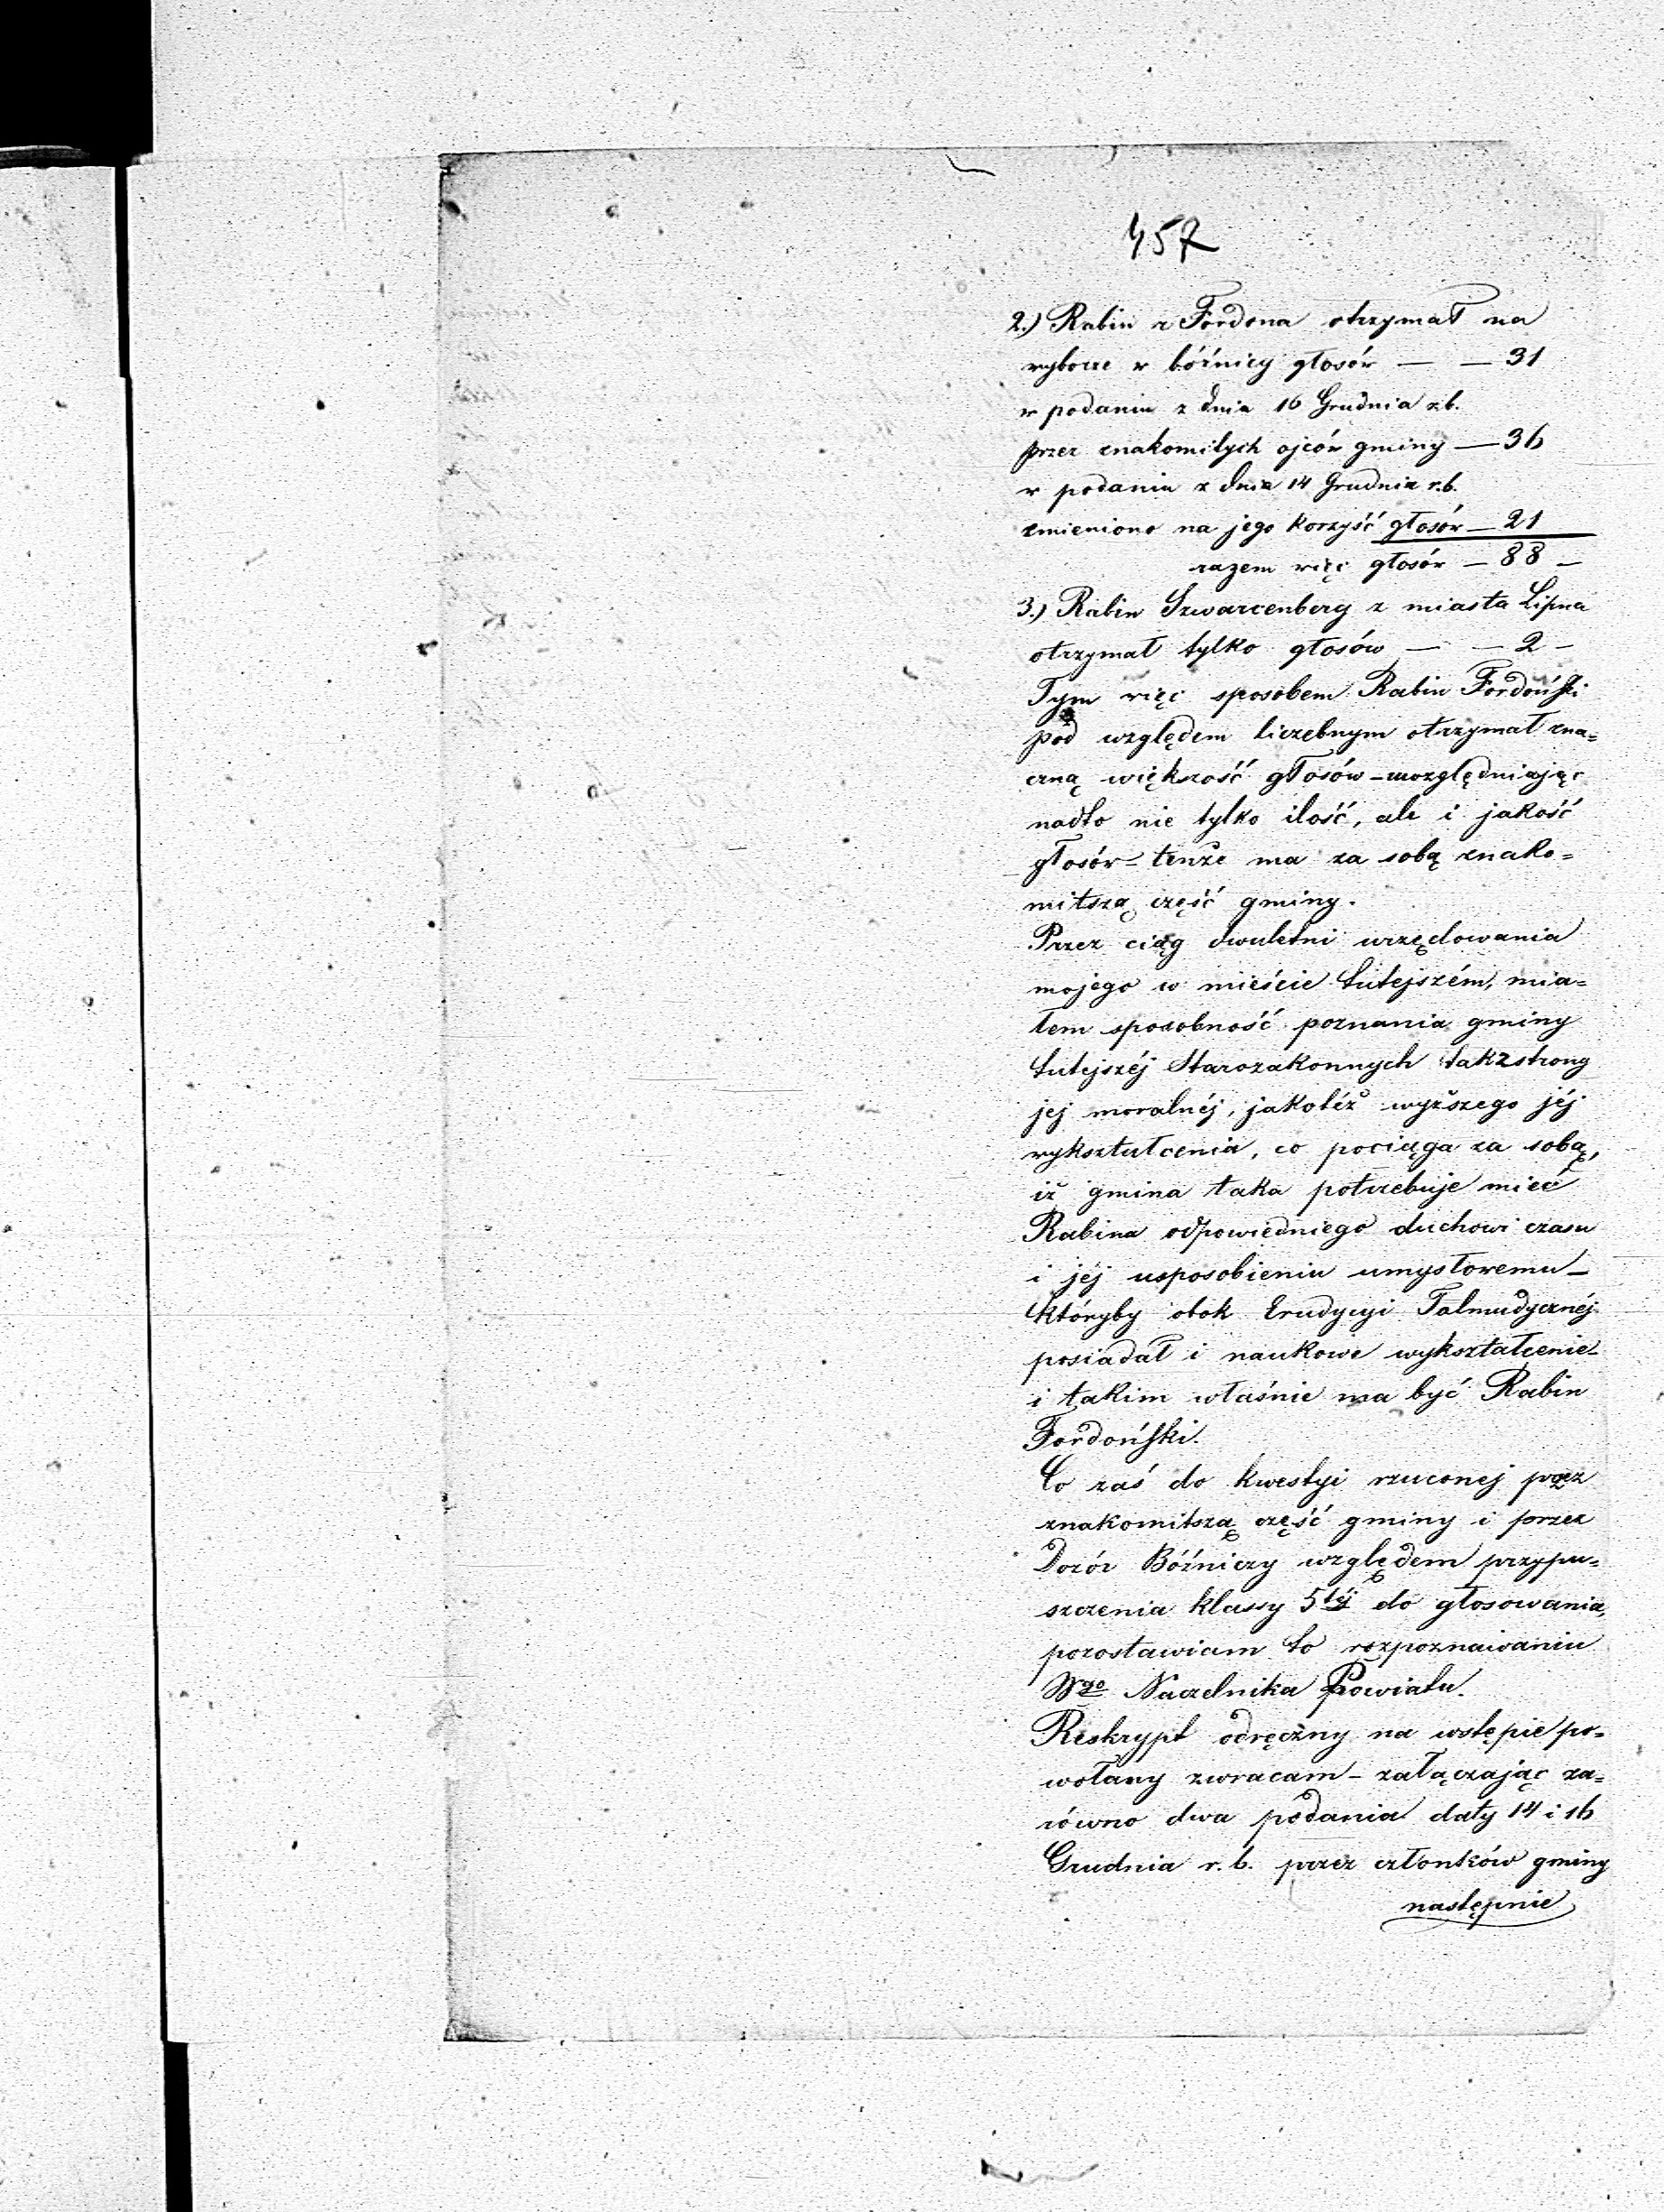 457
2.) Rabin z Fordona otrzymał na
wyborze w bóźnicy głosów — — 31
w podaniu z dnia 16 Grudnia r.b.
przez znakomitych ojców gminy — 36
w podaniu z dnia 14 Grudnia r.b.
zmieniono na jego korzyść głosów — 21
razem więc głosów — 88 —
3.) Rabin Szwarcenberg z miasta Lipna
otrzymał tylko głosów — — 2 —
Tym więc sposobem Rabin Fordoński
pod względem liczebnym otrzymał zna=
czną większość głosów — uwzględniając
nadto nie tylko ilość, ale i jakość
głosów — tenże ma za sobą znako=
mitszą część gminy.
Przez ciąg dwuletni urzędowania
mojego w mieście tutejszém, mia=
łem sposobność poznania gminy
tutejszéj Starozakonnych tak z strony
jej moralnéj, jakotéż wyższego jéj
wykształcenia, co pociąga za sobą,
iż gmina taka potrzebuje mieć
Rabina odpowiedniego duchowi czasu
i jéj usposobieniu umysłowemu —
któryby obok Erudycyi Talmudycznéj
posiadał i naukowe wykształcenie —
i takim właśnie ma być Rabin
Fordoński.
Co zaś do kwestyi rzuconej przez
znakomitszą część gminy i przez
Dozór Bóźniczy względem przypu=
szczenia klassy 5téj do głosowania,
pozostawiam to rozpoznawaniu
Wgo Naczelnika Powiatu.
Reskrypt odręczny na wstępie po=
wołany zwracam — załączając za=
równo dwa podania daty 14 i 16
Grudnia r. b. przez członków gminy
następnie